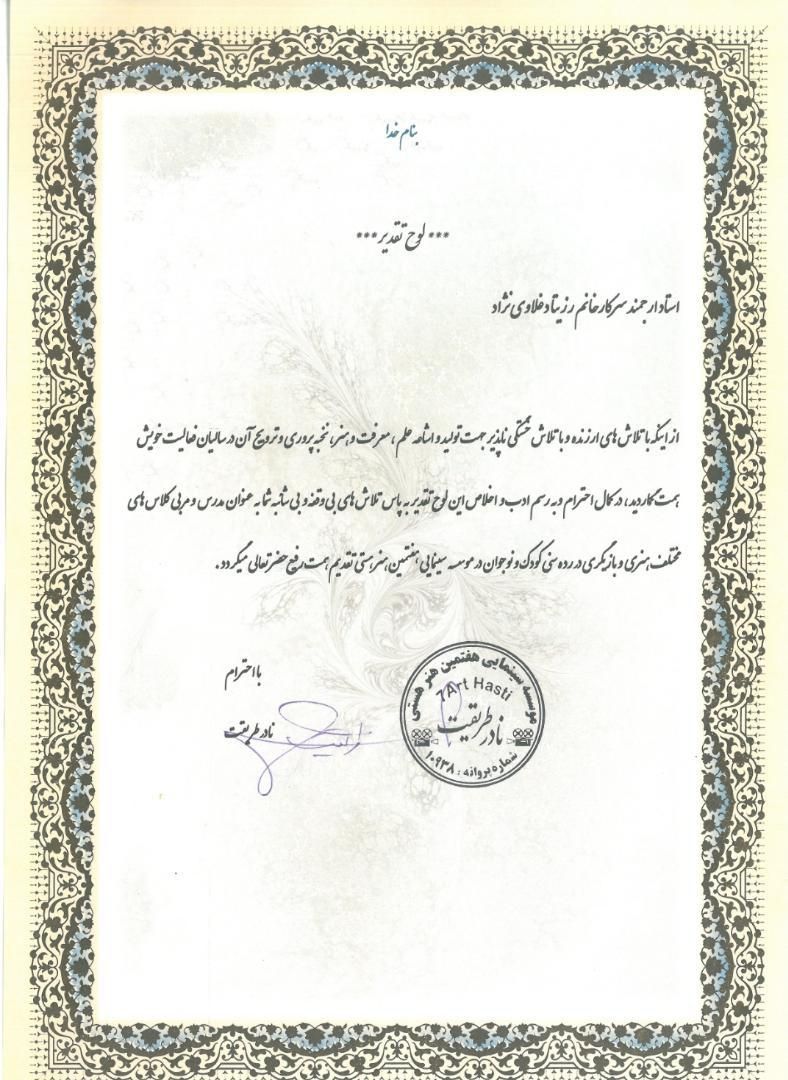 بنام خدا
*** لوح تقدیر ***
استاد ارجمند سرکار خانم رزیتا دغلاوی نژاد
از اینکه با تلاش های ارزنده و با تلاش خستگی ناپذیر جهت تولید و اشاعه علم ، معرفت و هنر، نخبه پروری و ترویج آن در سالیان فعالیت خویش
همت گماردید، در کمال احترام و به رسم ادب و اخلاص این لوح تقدیر به پاس تلاش های بی وقفه و بی شائبه شما به عنوان مدرس و مربی کلاس های
مختلف هنری و بازیگری در رده سنی کودک و نوجوان در موسسه سینمایی هفتمین هنر هستی تقدیم همت رفیع حضرتعالی میگردد .
با احترام
نادر طریقت
موسسه سینمایی هفتمین هنر هستی
7Art Hasti
نادر طریقت
شماره پروانه : ۱۰۹۳۸